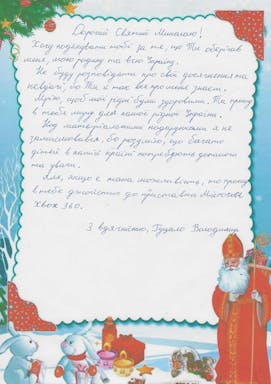 Дорогий Святий Миколаю!
Хочу подякувати тобі за те, що Ти оберігав
мене, мою родину та всю Україну.
Не буду розповідати про свої досягнення та
невдачі, бо Ти й так все про мене знаєш.
Мрію, щоб мої рідні були здоровими. Та прошу
в тебе миру для нашої рідної України.
Над матеріальними подарунками я не
замислювався, бо розумію, що багато
дітей в нашій країні потребують допомоги
та уваги.
Але, якщо є така можливість, то прошу
в тебе джойстик до приставки Microsoft
Xbox 360.
З вдячністю, Володимир